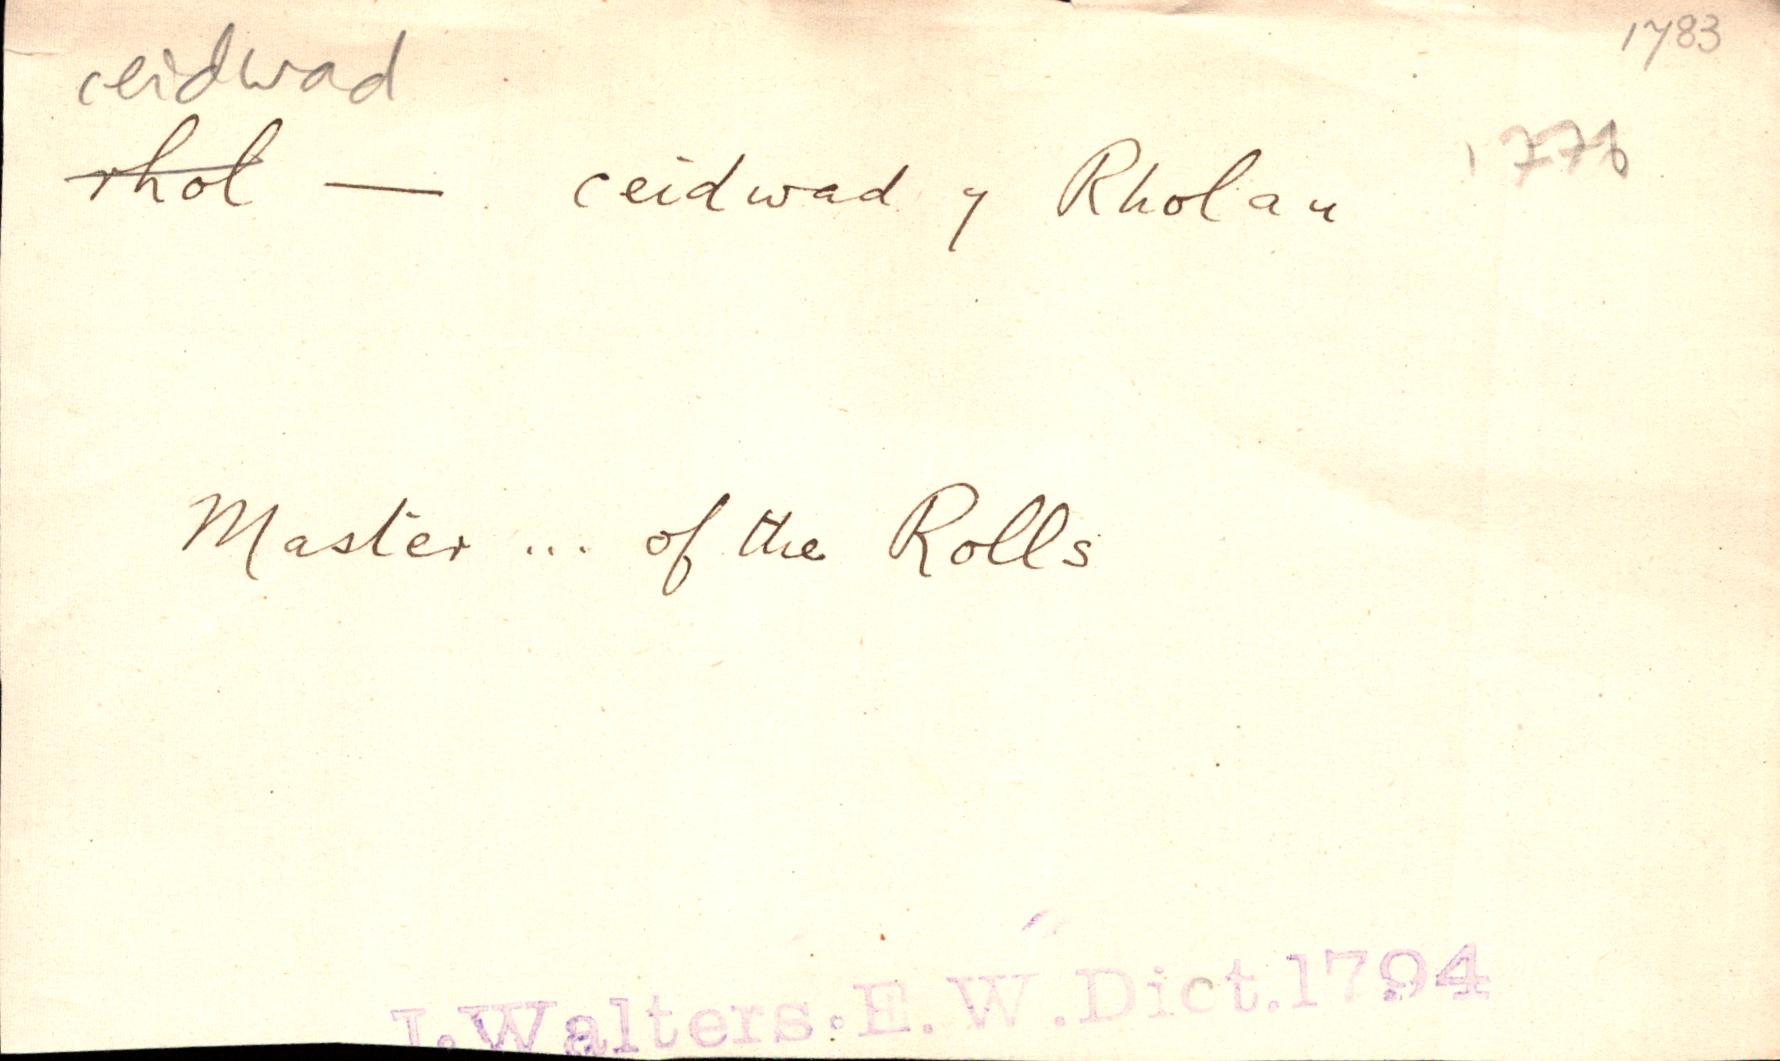 1783
ceidwad
rhol — ceidwad y Rholau 1776
Master ... of the Rolls
J. Walters: E. W. Dict. 1794